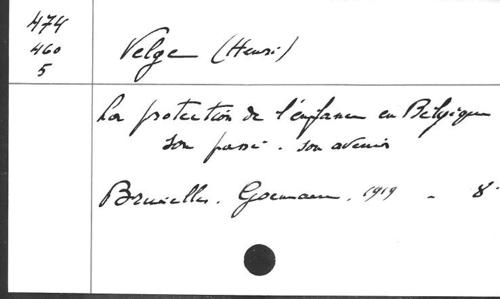 474
460
5
Velge (Henri)
La protection de l'enfance en Belgique
son passé - son avenir
Bruxelles. Goemaere. 1919 - 8°